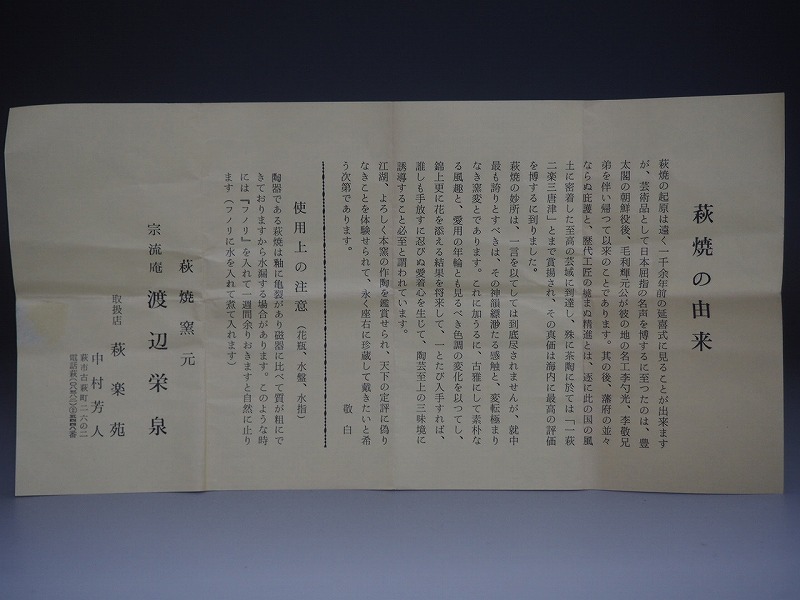 萩焼の由来
萩焼の起原は遠く一千余年前の延喜式に見ることが出来ます
が、芸術品として日本屈指の名声を博するに至つたのは、豊
太閤の朝鮮役後、毛利輝元公が彼の地の名工李勺光、李敬兄
弟を伴い帰つて以来のことであります。其の後、藩府の並々
ならぬ庇護と、歴代工匠の撓まぬ精進とは、逐に此の国の風
土に密着した至高の芸域に到達し、殊に茶陶に於ては「一萩
二楽三唐津」とまで賞揚され、その真価は海内に最高の評価
を博するに到りました。
萩焼の妙所は、一言を以てしては到底尽されませんが、就中
最も誇りとすべきは、その神韻縹渺たる感触と、変転極まり
なき窯変とであります。これに加うるに、古雅にして素朴な
る風趣と、愛用の年輪とも見るべき色調の変化を以つてし、
錦上更に花を添える結果を将来して、一とたび入手すれば、
誰しも手放すに忍びぬ愛着心を生じて、陶芸至上の三昧境に
誘導すること必至と謂われています。
江湖、よろしく本窯の作陶を鑑賞せられ、天下の定評に偽り
なきことを体験せられて、永く座右に珍蔵して戴きたいと希
う次第であります。
敬白
使用上の注意（花瓶、水盤、水指）
陶器である萩焼は釉に亀裂があり磁器に比べて質が粗にで
きておりますから水漏する場合があります。このような時
には『フノリ』を入れて一週間余りおきますと自然に止り
ます（フノリに水を入れて煮て入れます）
萩焼窯元
宗流庵 渡辺栄泉
取扱店 萩楽苑
中村芳人
萩市古萩町二六の二
電話萩